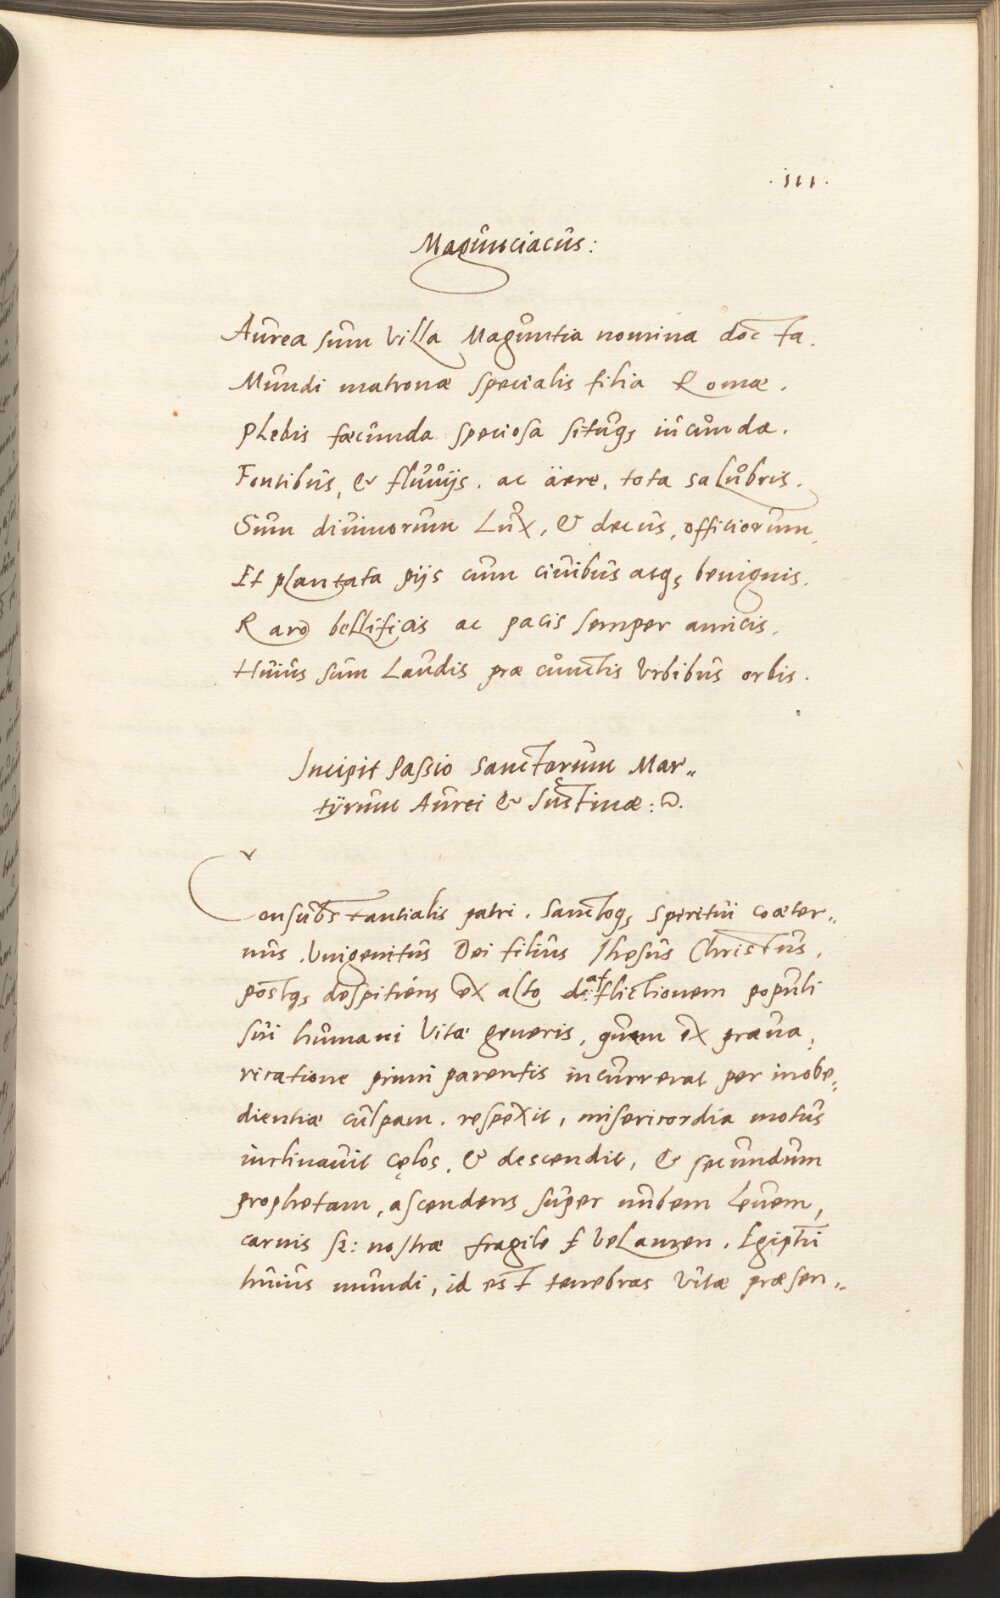 .111.
Magunciacus:
Aurea sum villa Maguntia nomina docta.
Mundi matronæ specialis filia Romæ.
Plebis fæcunda speciosa situq; iucunda.
Fontibus, & fluuijs. ac äere, tota salubris.
Sum diuinorum Lux, & decus, officiorum,
Et plantata pijs cum ciuibus atq; benignis.
Raro bellificis ac pacis semper amicis.
Huius sum Laudis præ cunctis vrbibus orbis.
Incipit Passio sanctorum Mar„
tÿrum Aurei & Iustinæ:
Consubstantialis patri. sanctoq; spiritui coæter„
nus. Vnigenitus Dei filius Ihesus Christus.
postq; despitiens ex alto, afflictionem populi
sui humani vitæ generis, quam ex præua„
ricatione primi parentis incurrerat per inobe„
dientiæ culpam. respexit, misericordia motus
inclinauit cęlos, & descendit, & secundum
prophetam, ascendens super nubem leuem,
carnis sz: nostræ fragile velamen. Egipti
huius mundi, id est tenebras vitæ præsen„